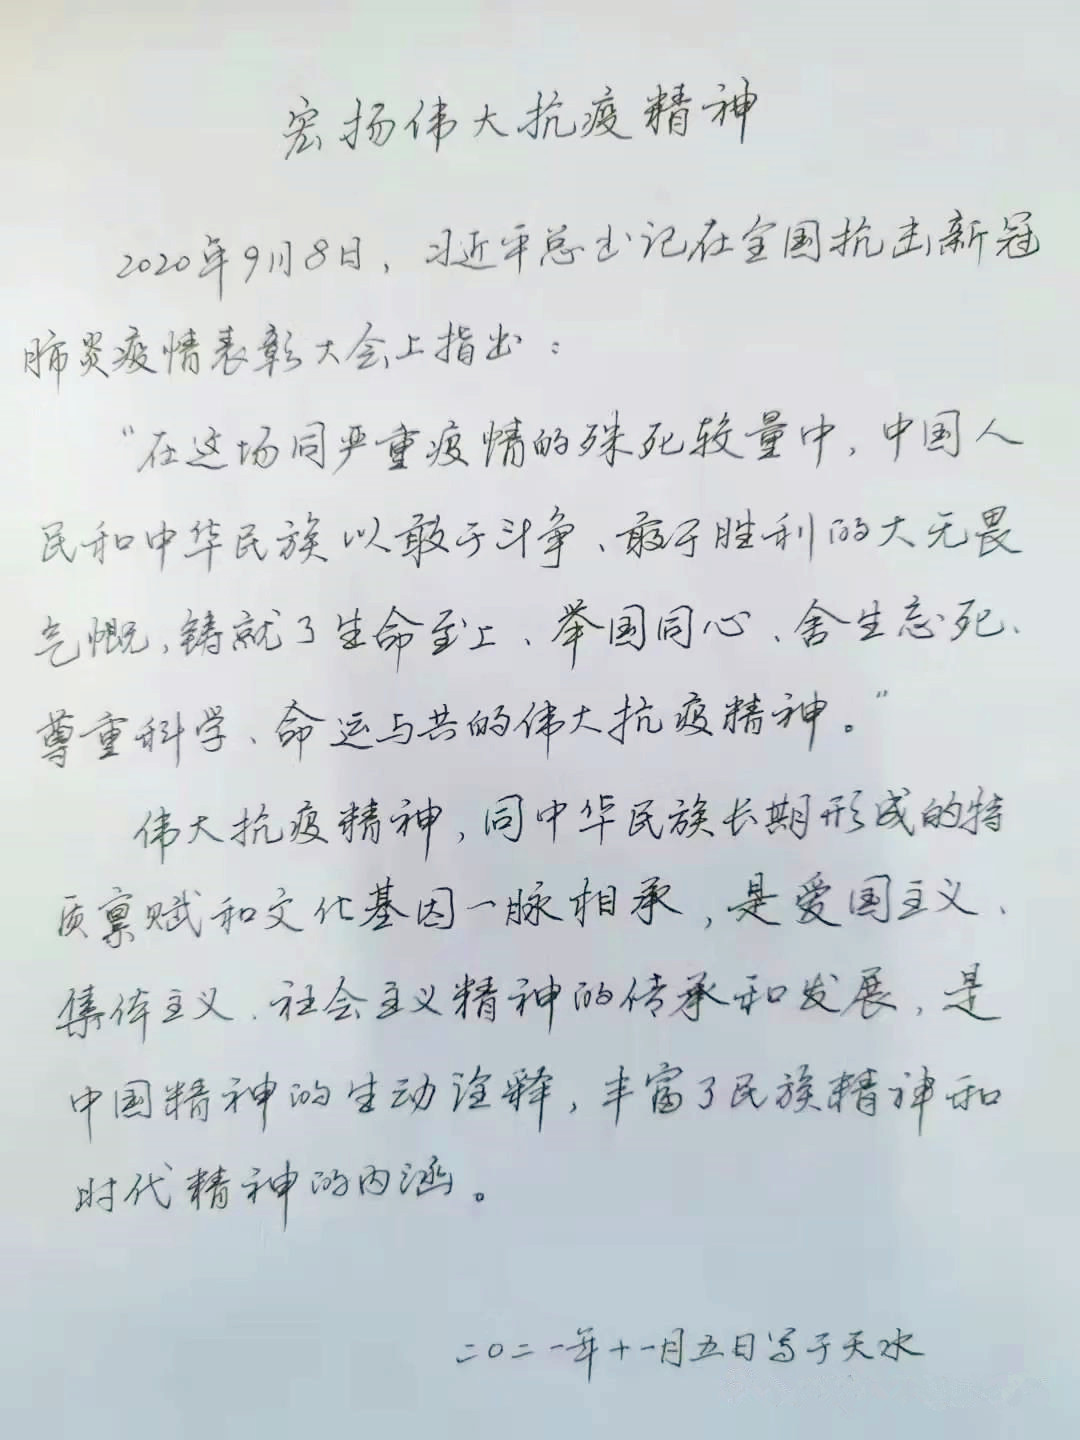 宏扬伟大抗疫精神
2020年9月8日，习近平总书记在全国抗击新冠
肺炎疫情表彰大会上指出：
“在这场同严重疫情的殊死较量中，中国人
民和中华民族以敢于斗争、敢于胜利的大无畏
气慨，铸就了生命至上、举国同心、舍生忘死、
尊重科学、命运与共的伟大抗疫精神。”
伟大抗疫精神，同中华民族长期形成的特
质禀赋和文化基因一脉相承，是爱国主义、
集体主义、社会主义精神的传承和发展，是
中国精神的生动诠释，丰富了民族精神和
时代精神的内涵。
二〇二一年十一月五日写于天水